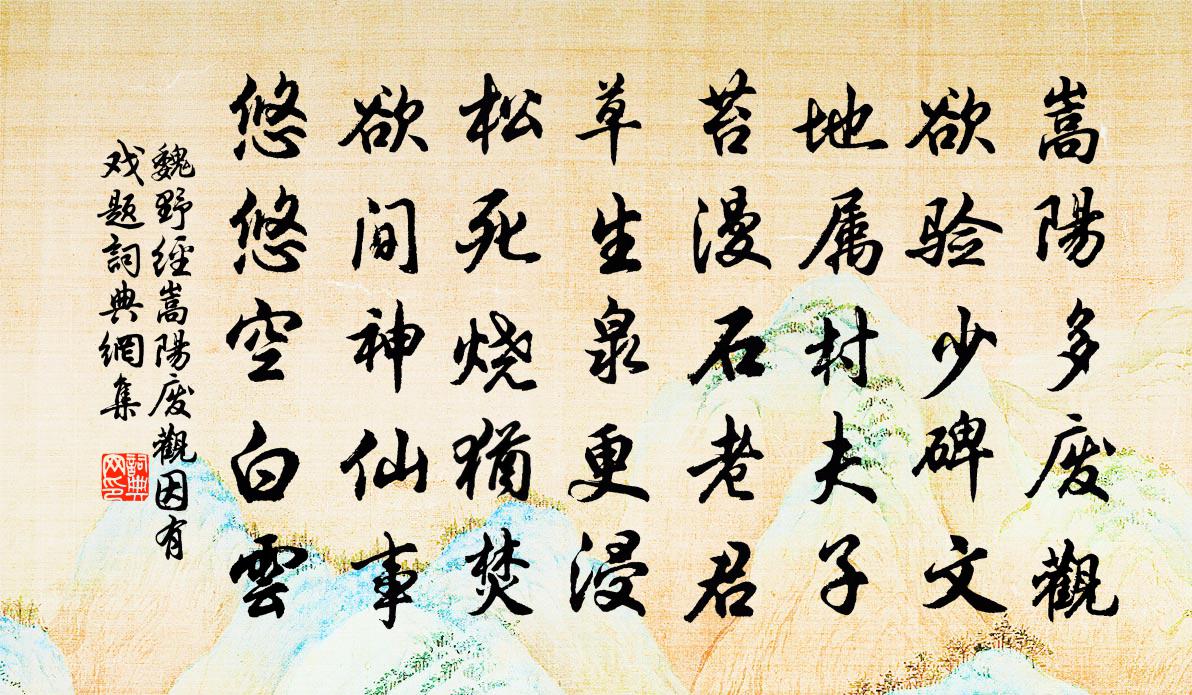 嵩陽多废觀
欲验少碑文
地属村夫子
苔漫石老君
草生泉更浸
松死烧犹焚
欲间神仙事
悠悠空白雲
魏野經嵩陽废觀因有
戏题詞典網集
詞典网印